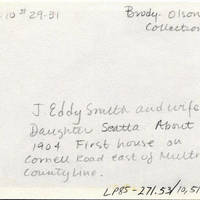 Brody-Olson
Collection
J. Eddy Smith and wife
Daughter About
1904 First house on
Cornell Road east of Multn
County line.
LP85-271.53/10,51